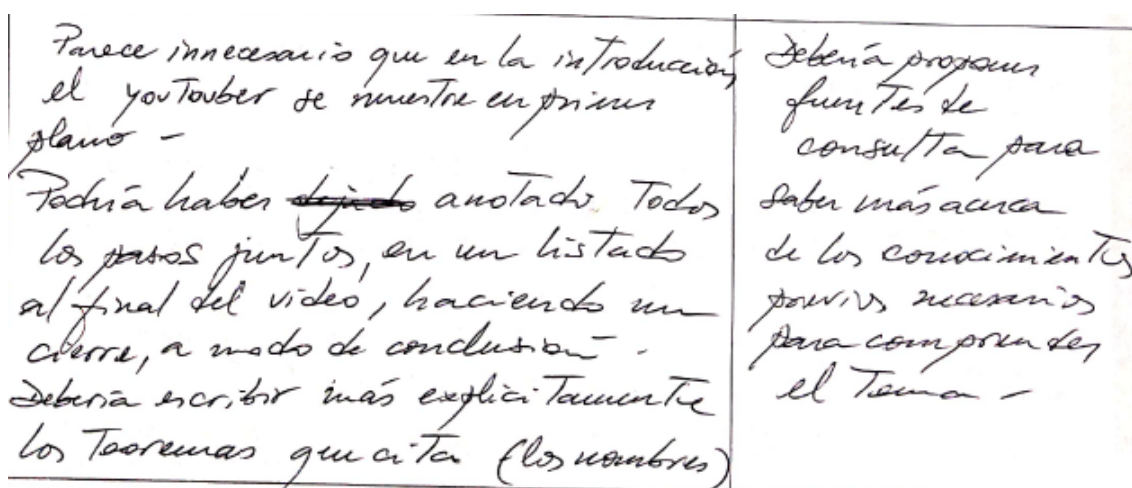 Parece innecesario que en la introducción
el youTouber se muestre en primer
plano -
Podría haber dejado anotado Todos
los pasos junTos, en un lisTado
al final del video, haciendo un
cierre, a modo de conclusión -
Debería escribir más expliciTamenTe
los Teoremas que ciTa (los nombres)
Debería proponer
fuenTes de
consulTa para
saber más acerca
de los conocimienTos
previos necesarios
para comprender
el Tema -